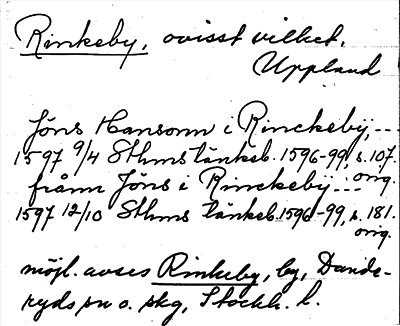 Rinkeby, ovisst vilket,
Uppland
Jöns Hansonn i Rinckebÿ, ---
1597 9/4 Sthms tänkeb. 1596-99, s. 107.
orig.
frånn Jöns i Rinckebÿ ---
1597 12/10 Sthms tänkeb. 1596-99, s. 181.
orig.
möjl. avses Rinkeby, by, Dande-
ryds sn o. skg, Stockh. l.